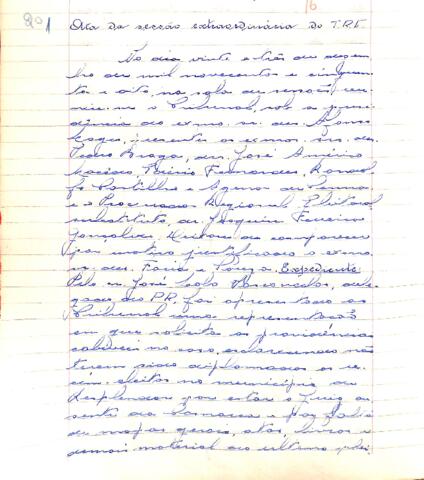 16
201 Ata da secção extraordinária do T.R.E.
No dia vinte e três de dezem-
bro de mil novecentos e cinquen-
ta e oito, na sala de sessões reu-
niu-se o Tribunal, sob a presi-
dência do exmo. sr. des. Afonso
Lages, presentes os exmos. srs. des.
Pedro Braga, drs. José Américo
Macedo, Fernandes, Ronaldo
Portilho e de
e o Procurador Regional Eleitoral
substituto, dr. Joaquim Ferreira
Gonçalves. Deixou de comparecer
por motivo justificado o exmo.
sr. des. Faria e Souza. Expediente
Pelo sr. José Vasconcelos, dele-
gado do PR, foi apresentado ao
Tribunal uma representação
em que solicita as providências
cabíveis no caso, esclarecendo não
terem sido diplomados os re-
cém-eleitos no município de
Resplendor por estar o Juiz au-
sente da Comarca e por falta
de mapas gerais, atas, livros e
demais material do último plei-